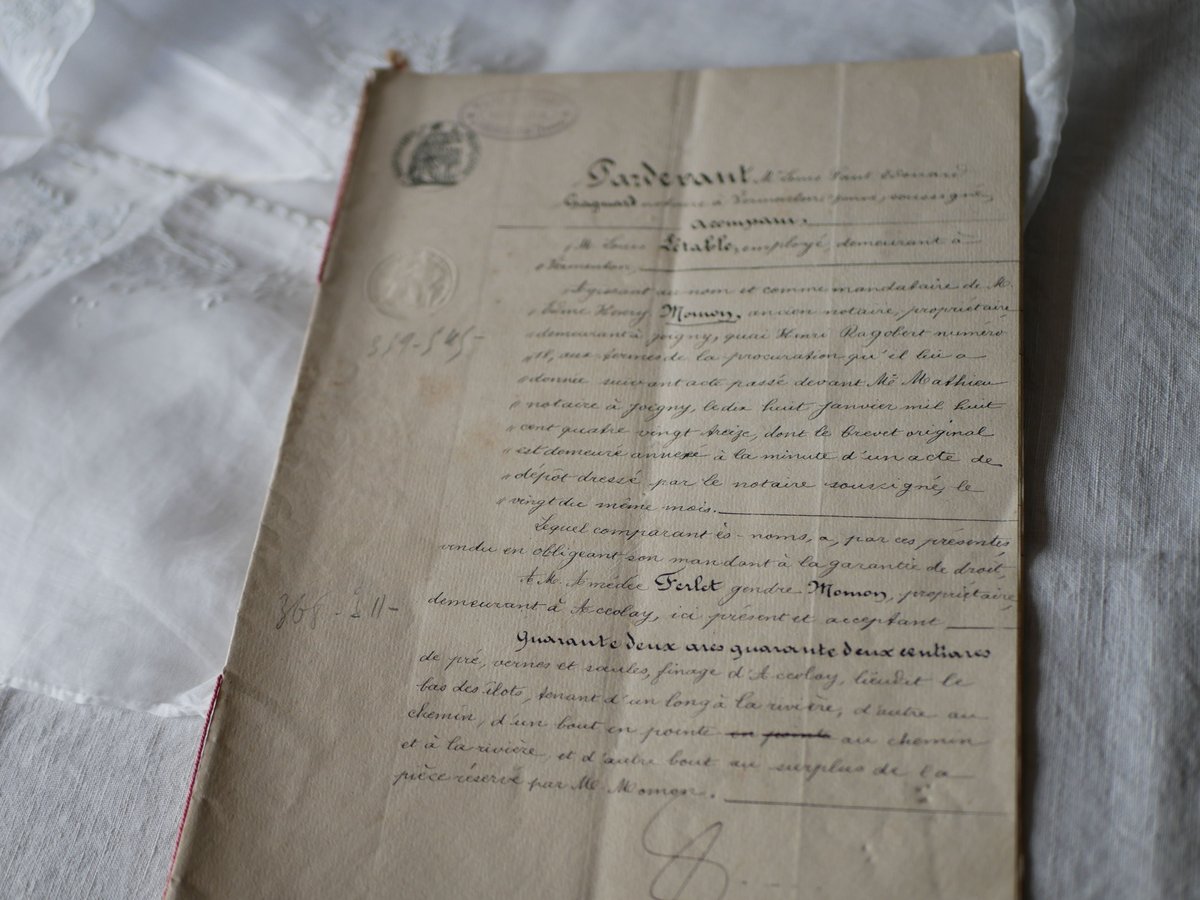 Pardevant Me Louis Paul Edouard
Gagnard notaire à Vermenton soussigné,
a comparu,
M. Louis Létable, employé, demeurant à
Vermenton,
Agissant au nom et comme mandataire de M.
Henry Momon, ancien notaire, propriétaire
demeurant à Joigny, quai Henri Ragobert numéro
11, aux termes de la procuration qu'il lui a
donnée suivant acte passé devant Me Mathieu
notaire à Joigny, le dix huit Janvier mil huit
cent quatre vingt treize, dont le brevet original
est demeuré annexé à la minute d'un acte de
dépôt dressé par le notaire soussigné, le
vingt du même mois.
Lequel comparant ès-noms, a, par ces présentes
vendu en obligeant son mandant à la garantie de droit,
A M. Amédée Ferlet gendre Momon, propriétaire,
demeurant à Accolay, ici présent et acceptant
359-545-
368-211-
Quarante deux ares quarante deux centiares
de pré, vernes et saules, finage d'Accolay, lieudit le
bas des îlots, tenant d'un long à la rivière, d'autre au
chemin, d'un bout en pointe en pointe au chemin
et à la rivière, et d'autre bout au surplus de la
pièce réservé par Me Momon.